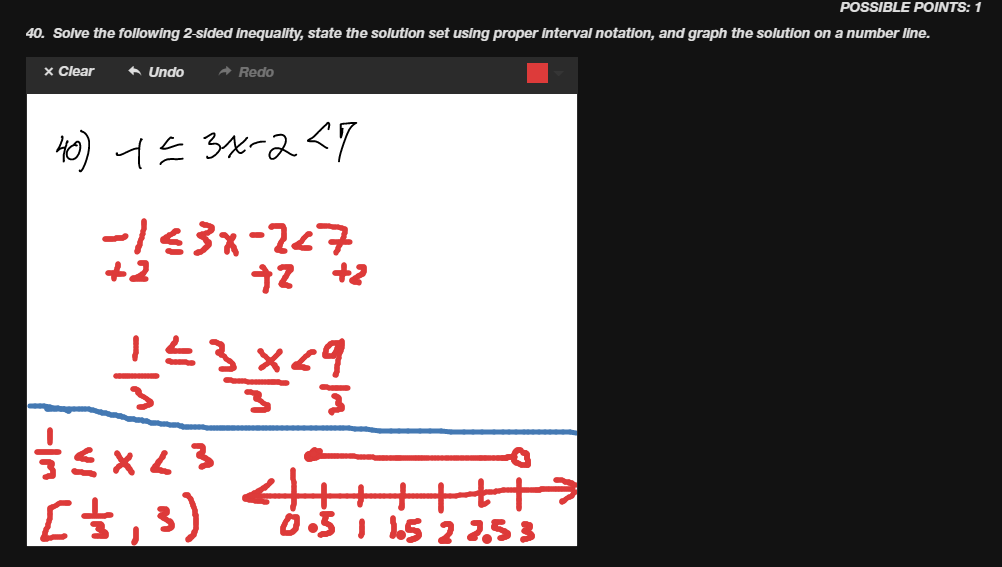 POSSIBLE POINTS: 1
40. Solve the following 2-sided inequality, state the solution set using proper interval notation, and graph the solution on a number line.
× Clear Undo Redo
40) -1 ≤ 3x-2 <7
-1 ≤ 3x -2 < 7
+2 +2 +2
1 ≤ 3 x < 9
3 3 3
1/3 ≤ x < 3
[1/3, 3)
0 .5 1 1.5 2 2.5 3